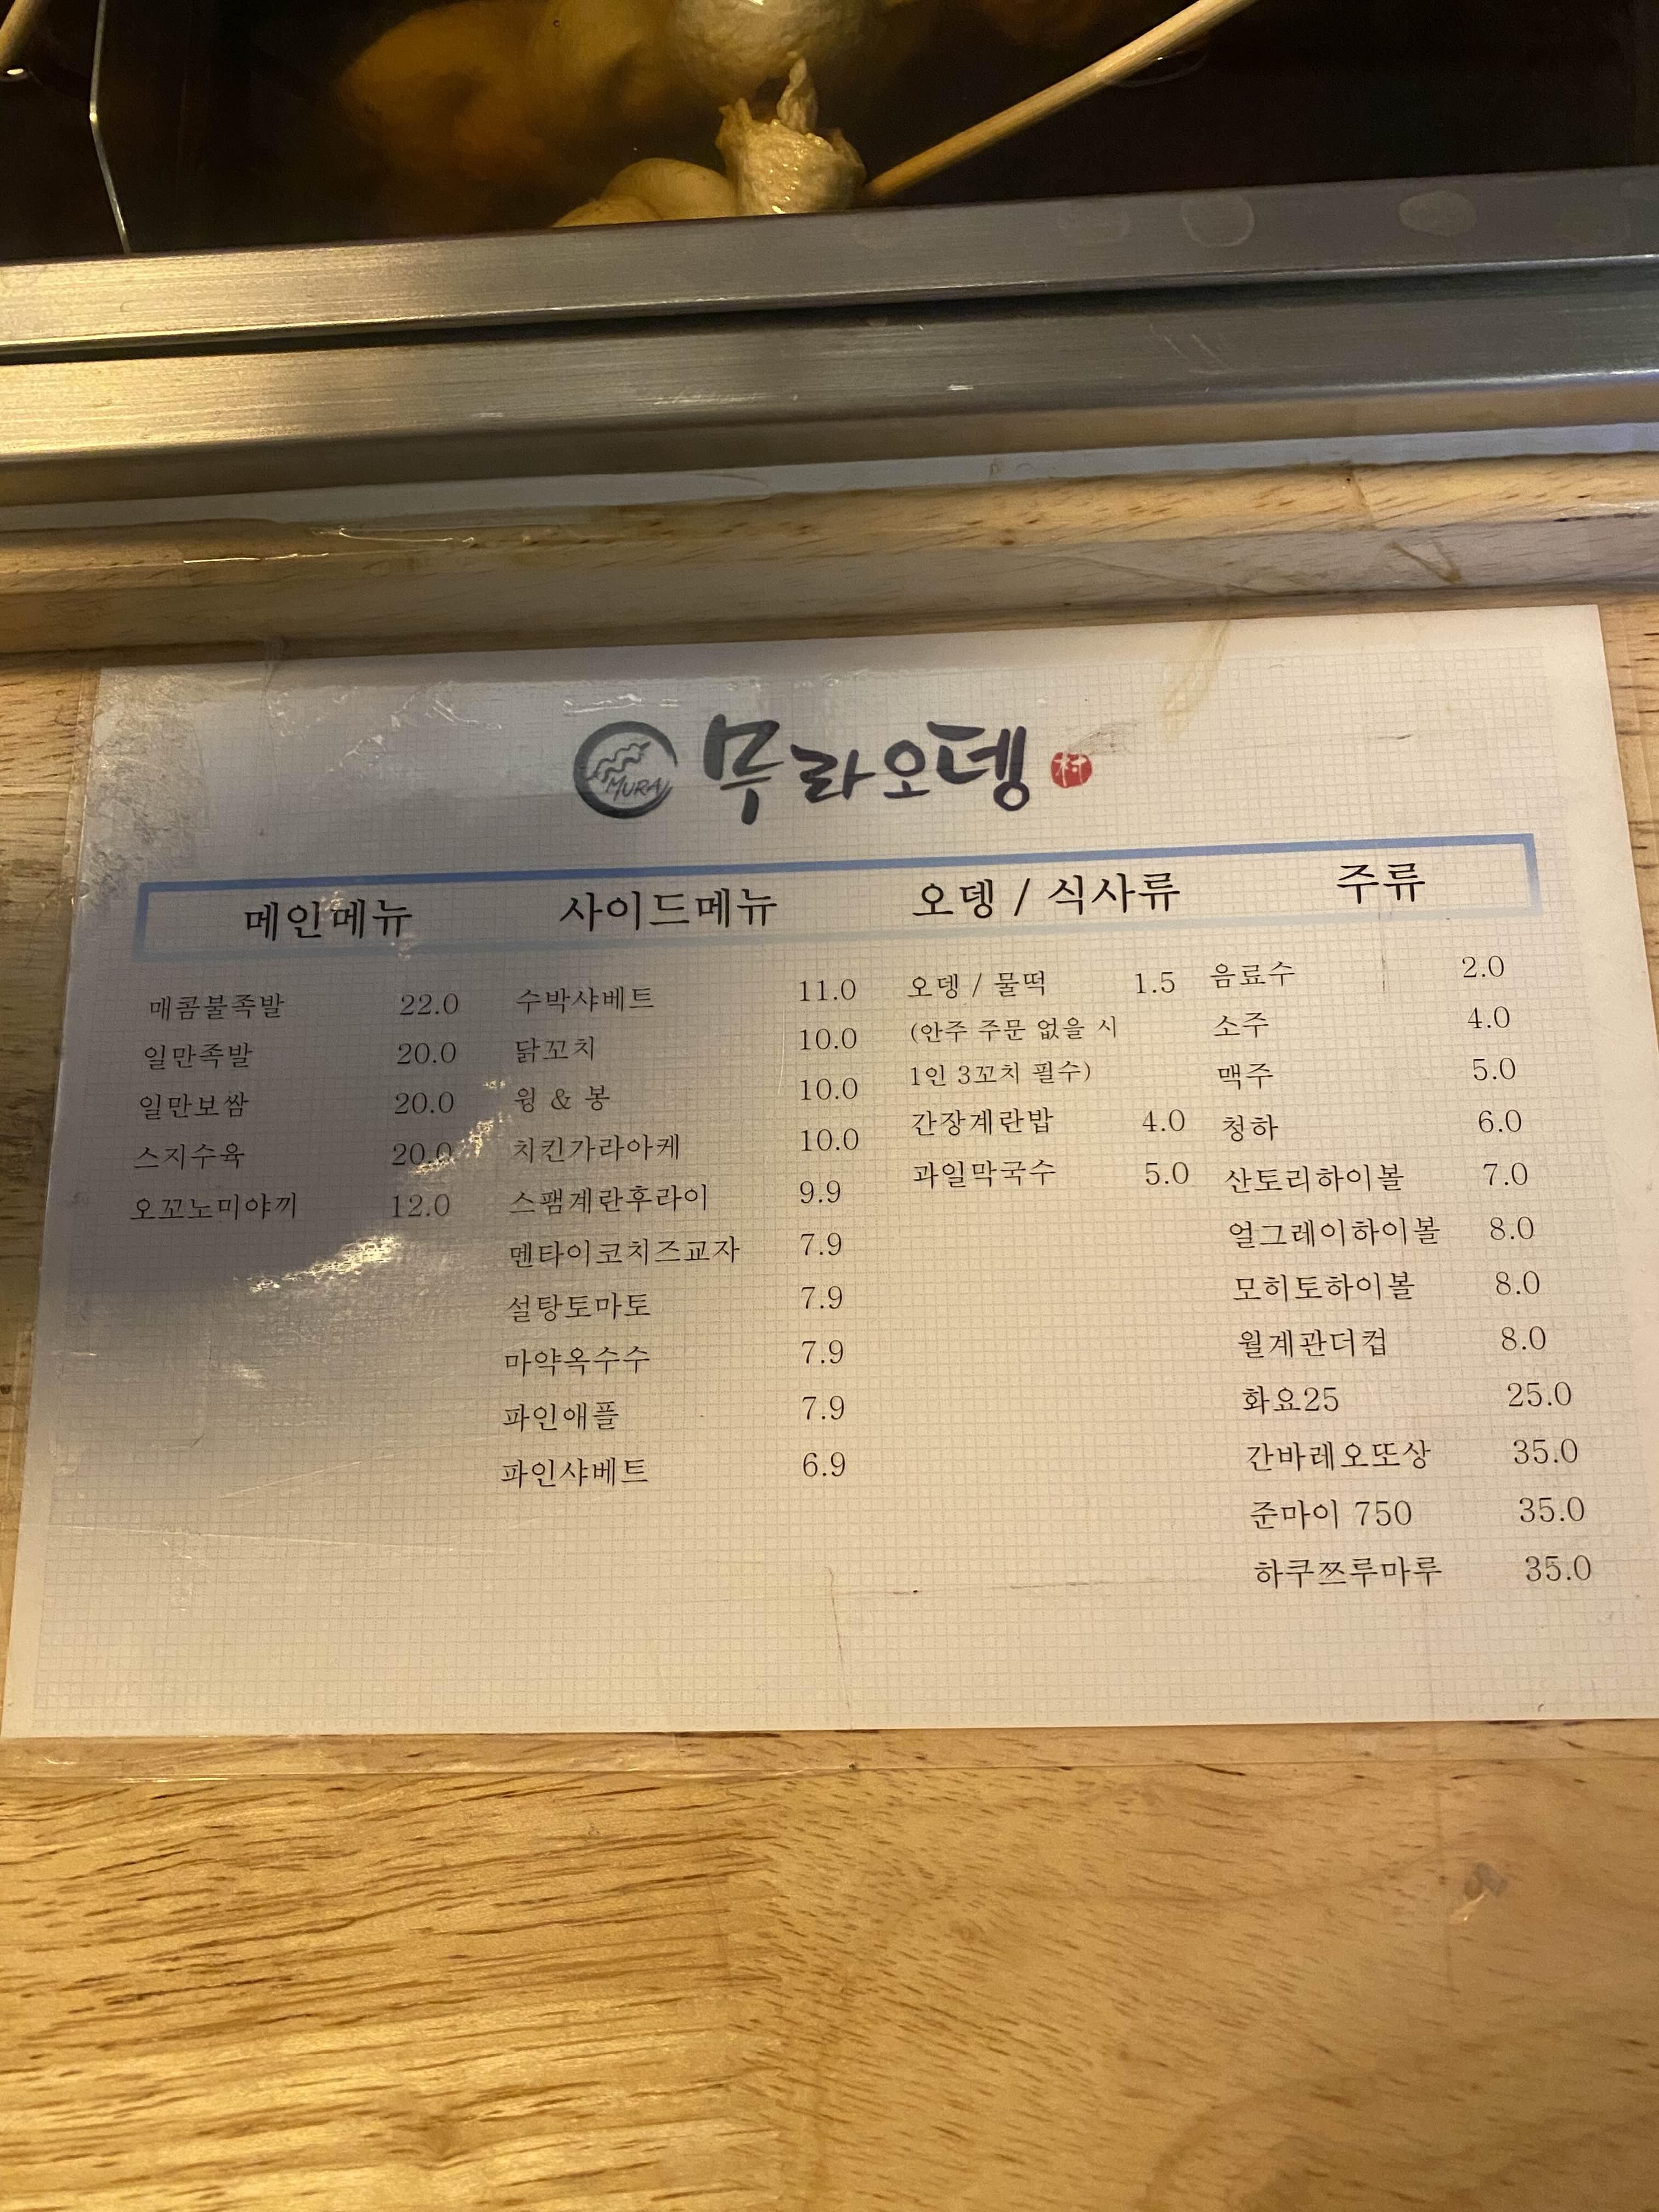 MURA 무라오뎅 村
메인메뉴 사이드메뉴 오뎅 / 식사류 주류
매콤불족발 22.0
일만족발 20.0
일만보쌈 20.0
스지수육 20.0
오꼬노미야끼 12.0
수박샤베트 11.0
닭꼬치 10.0
윙 & 봉 10.0
치킨가라아케 10.0
스팸계란후라이 9.9
멘타이코치즈교자 7.9
설탕토마토 7.9
마약옥수수 7.9
파인애플 7.9
파인샤베트 6.9
오뎅 / 물떡 1.5
(안주 주문 없을 시
1인 3꼬치 필수)
간장계란밥 4.0
과일막국수 5.0
음료수 2.0
소주 4.0
맥주 5.0
청하 6.0
산토리하이볼 7.0
얼그레이하이볼 8.0
모히토하이볼 8.0
월계관더컵 8.0
화요25 25.0
간바레오또상 35.0
준마이 750 35.0
하쿠쯔루마루 35.0